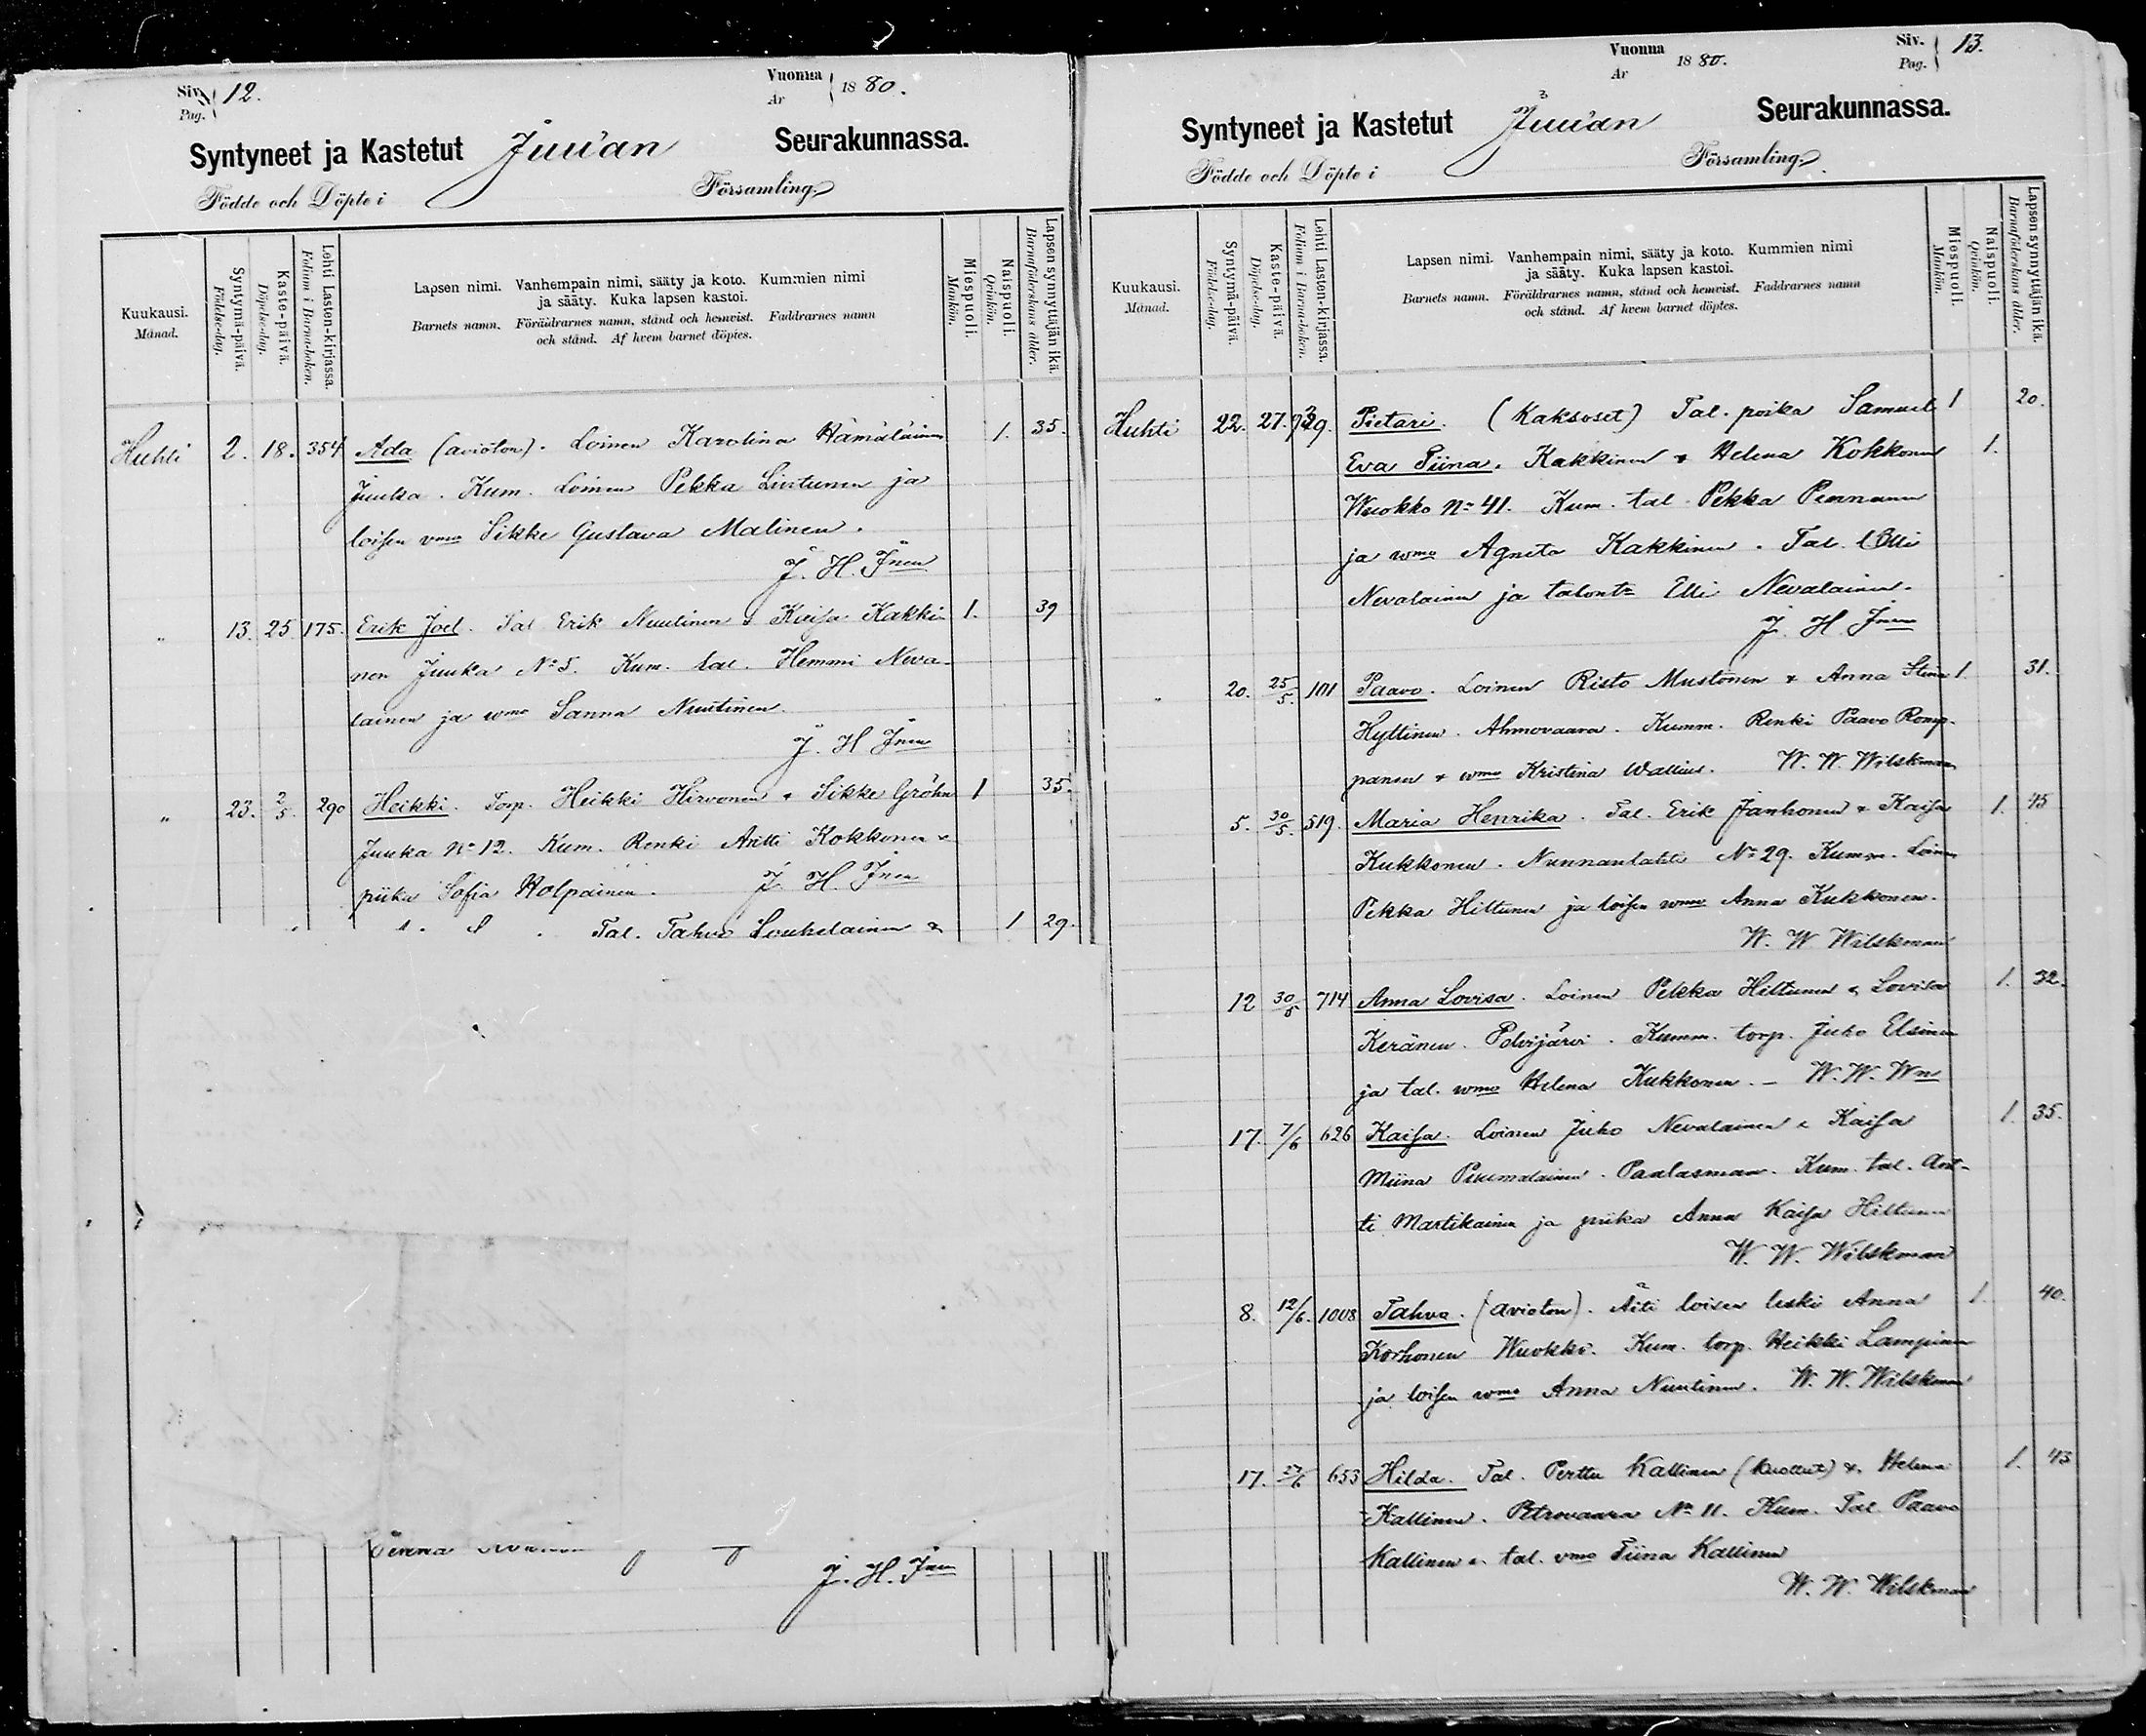 Siv. 12.
Pag.
Vuonna 1880.
Ar
Syntyneet ja Kastetut Juuan Seurakunnassa.
Födde och Döpte i Församling.
Kuukausi.
Månad.
Syntymä-päivä.
Födelse-dag.
Kaste-päivä.
Döpelse-dag.
Lehti Lasten-kirjassa.
Folium i Barna-boken.
Lapsen nimi. Vanhempain nimi, sääty ja koto. Kummien nimi
ja sääty. Kuka lapsen kastoi.
Barnets namn. Föräldrarnes namn, stånd och hemvist. Faddrarnes namn
och stånd. Af hvem barnet döptes.
Miespuoli.
Mankön.
Naispuoli.
Qvinkön.
Lapsen synnyttäjän ikä.
Barnaföderskans ålder.
Huhti 2. 18. 354 Ada (avioton). Loinen Karolina Hämäläinen 1. 35.
Juuka. Kum. Loinen Pekka Lintunen ja
loisen vmo Sikke Gustava Malinen.
J. H. Jnen
" 13. 25 175. Erik Joel. Tal Erik Nuutinen & Kaisa Kakki- 1. 39
nen Juuka No 5. Kum. tal. Hemmi Neva-
lainen ja wmo Sanna Nuutinen.
J. H Jnen
" 23. 2/5. 290 Heikki. Torp. Heikki Hirvonen & Sikke Gröhn 1 35.
Juuka No 12. Kum. Renki Antti Kokkonen &
piika Sofia Holpainen. J. H. Jnen
Tal. Tahvo Louhelainen & 1 29.
J. H. Jnen
Vuonna 1880.
Ar
Siv. 13.
Pag.
Syntyneet ja Kastetut Juuan Seurakunnassa.
Födde och Döpte i Församling.
Kuukausi.
Månad.
Syntymä-päivä.
Födelse-dag.
Kaste-päivä.
Döpelse-dag.
Lehti Lasten-kirjassa.
Folium i Barna-boken.
Lapsen nimi. Vanhempain nimi, sääty ja koto. Kummien nimi
ja sääty. Kuka lapsen kastoi.
Barnets namn. Föräldrarnes namn, stånd och hemvist. Faddrarnes namn
och stånd. Af hvem barnet döptes.
Miespuoli.
Mankön.
Naispuoli.
Qvinkön.
Lapsen synnyttäjän ikä.
Barnaföderskans ålder.
Huhti 22. 27. Pietari. (Kaksoset) Tal. poika Samuel 1 20.
Eva Tiina. Kakkinen & Helena Kokkonen 1.
Wuokko No 41. Kum. tal. Pekka Pennanen
ja wmo Agneta Kakkinen. Tal. Olli
Nevalainen ja talont. Elli Nevalainen.
J. H. Jnen
" 20. 25/5. 101 Paavo. Loinen Risto Mustonen & Anna Stina 1. 31.
Hyttinen. Ahmovaara. Kumm. Renki Paavo Romp-
panen & wmo Kristina Wallius. W. W. Wilskman
5. 30/5. 519. Maria Henrika. Tal. Erik Janhonen & Kaisa 1. 45
Kukkonen. Nunnanlahti No 29. Kumm. Loinen
Pekka Hiltunen ja loisen wmo Anna Kukkonen.
W. W Wilskman
12 30/5 714 Anna Lovisa. Loinen Pekka Hiltunen & Lovisa 1. 32.
Keränen. Polvijärvi. Kumm. torp. Juho Elsinen
ja tal. wmo Helena Kukkonen. – W. W. Wn
17. 7/6 626 Kaisa. Loinen Juho Nevalainen & Kaisa 1. 35.
Miina Puumalainen. Paalasmaa. Kum. tal. Ant-
ti Martikainen ja piika Anna Kaisa Hiltunen
W. W. Wilskman
8. 12/6. 1008 Tahvo. (avioton). Äiti loisen leski Anna 1. 40.
Korhonen Wuokko. Kum. torp. Heikki Lampinen
ja loisen wmo Anna Nuutinen. W. W. Wilskman
17. 27/6 653 Hilda. Tal. Perttu Kallinen (kuollut) & Helena 1. 43
Kallinen. Petrovaara No 11. Kum. Tal. Paavo
Kallinen & tal. vmo Tiina Kallinen
W. W. Wilskman